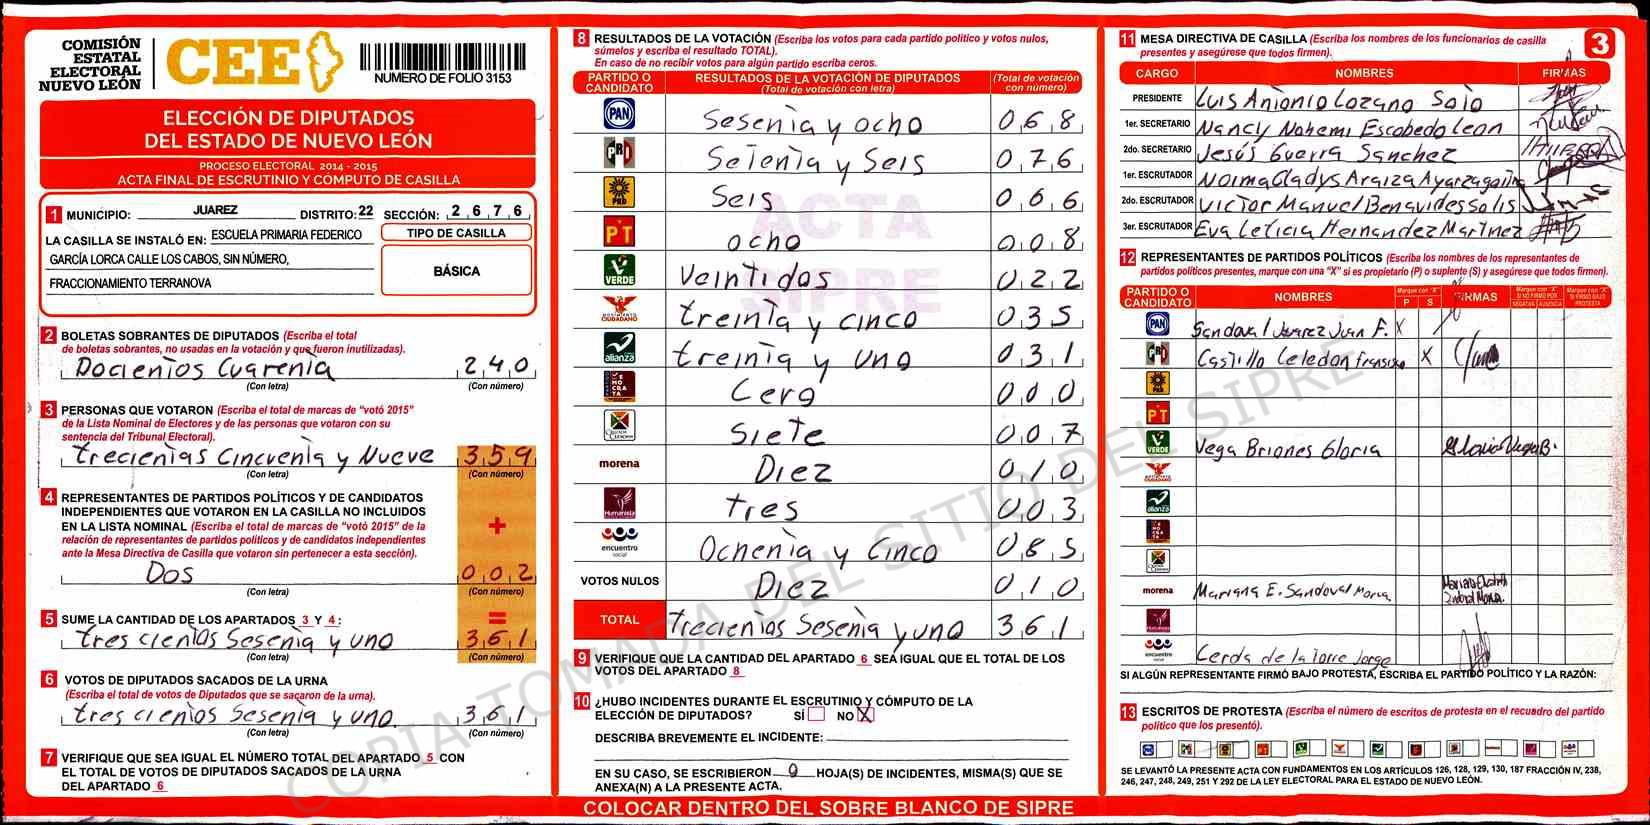 COMISIÓN
ESTATAL
ELECTORAL
NUEVO LEÓN
CEE
NUMERO DE FOLIO 3153
ELECCIÓN DE DIPUTADOS
DEL ESTADO DE NUEVO LEÓN
PROCESO ELECTORAL 2014 - 2015
ACTA FINAL DE ESCRUTINIO Y CÓMPUTO DE CASILLA
1 MUNICIPIO: JUAREZ DISTRITO: 22 SECCIÓN: 2 6 7 6
LA CASILLA SE INSTALÓ EN: ESCUELA PRIMARIA FEDERICO
GARCÍA LORCA CALLE LOS CABOS, SIN NÚMERO,
FRACCIONAMIENTO TERRANOVA
TIPO DE CASILLA
BÁSICA
2 BOLETAS SOBRANTES DE DIPUTADOS (Escriba el total
de boletas sobrantes, no usadas en la votación y que fueron inutilizadas).
Docientos Cuarenta 2 4 0
(Con letra) (Con número)
3 PERSONAS QUE VOTARON (Escriba el total de marcas de "votó 2015"
de la Lista Nominal de Electores y de las personas que votaron con su
sentencia del Tribunal Electoral).
trecientas Cincuenta y Nueve 3 5 9
(Con letra) (Con número)
4 REPRESENTANTES DE PARTIDOS POLÍTICOS Y DE CANDIDATOS
INDEPENDIENTES QUE VOTARON EN LA CASILLA NO INCLUIDOS
EN LA LISTA NOMINAL (Escriba el total de marcas de "votó 2015" de la
relación de representantes de partidos políticos y de candidatos independientes
ante la Mesa Directiva de Casilla que votaron sin pertenecer a esta sección).
+
Dos 0 0 2
(Con letra) (Con número)
=
5 SUME LA CANTIDAD DE LOS APARTADOS 3 Y 4:
tres cientos Sesenta y uno 3 6 1
(Con letra) (Con número)
6 VOTOS DE DIPUTADOS SACADOS DE LA URNA
(Escriba el total de votos de Diputados que se sacaron de la urna).
tres cientos Sesenta y uno. 3 6 1
(Con letra) (Con número)
7 VERIFIQUE QUE SEA IGUAL EL NÚMERO TOTAL DEL APARTADO 5 CON
EL TOTAL DE VOTOS DE DIPUTADOS SACADOS DE LA URNA
DEL APARTADO 6
8 RESULTADOS DE LA VOTACIÓN (Escriba los votos para cada partido político y votos nulos,
súmelos y escriba el resultado TOTAL).
En caso de no recibir votos para algún partido escriba ceros.
PARTIDO O CANDIDATO RESULTADOS DE LA VOTACIÓN DE DIPUTADOS (Total de votación con letra) (Total de votación con número)
PAN Sesenta y ocho 0 6 8
PRI Setenta y Seis 0 7 6
PRD Seis 0 0 6
PT ocho 0 0 8
VERDE Veintidos 0 2 2
MOVIMIENTO CIUDADANO treinta y cinco 0 3 5
alianza treinta y uno 0 3 1
DEMOCRATA Cero 0 0 0
CRUZADA CIUDADANA Siete 0 0 7
morena Diez 0 1 0
Humanista tres 0 0 3
encuentro social Ochenta y Cinco 0 8 5
VOTOS NULOS Diez 0 1 0
TOTAL trecientos Sesenta y uno 3 6 1
ACTA
SIPRE
9 VERIFIQUE QUE LA CANTIDAD DEL APARTADO 6 SEA IGUAL QUE EL TOTAL DE LOS
VOTOS DEL APARTADO 8
10 ¿HUBO INCIDENTES DURANTE EL ESCRUTINIO Y CÓMPUTO DE LA
ELECCIÓN DE DIPUTADOS? SÍ NO X
DESCRIBA BREVEMENTE EL INCIDENTE:
EN SU CASO, SE ESCRIBIERON 0 HOJA(S) DE INCIDENTES, MISMA(S) QUE SE
ANEXA(N) A LA PRESENTE ACTA.
COLOCAR DENTRO DEL SOBRE BLANCO DE SIPRE
11 MESA DIRECTIVA DE CASILLA (Escriba los nombres de los funcionarios de casilla
presentes y asegúrese que todos firmen).
3
CARGO NOMBRES FIRMAS
PRESIDENTE Luis Antonio Lozano Soto
1er. SECRETARIO Nancy Nohemi Escobedo Leon
2do. SECRETARIO Jesús Guerra Sanchez
1er. ESCRUTADOR Norma Gladys Araiza Ayarzagoitia
2do. ESCRUTADOR Victor Manuel Benavides Solis
3er. ESCRUTADOR Eva Leticia Hernandez Martinez
12 REPRESENTANTES DE PARTIDOS POLÍTICOS (Escriba los nombres de los representantes de
partidos políticos presentes, marque con una "X" si es propietario (P) o suplente (S) y asegúrese que todos firmen).
PARTIDO O CANDIDATO NOMBRES Marque con "X" P S FIRMAS Marque con "X" SI NO FIRMÓ POR NEGATIVA AUSENCIA Marque con "X" SI FIRMÓ BAJO PROTESTA
PAN Sandoval Juarez Juan F. X
PRI Castillo Celedon X
PRD
PT
VERDE Vega Briones Gloria Gloria Vega B.
alianza
morena Mariana E. Sandoval
encuentro social Cerda de la Torre Jorge
SI ALGÚN REPRESENTANTE FIRMÓ BAJO PROTESTA, ESCRIBA EL PARTIDO POLÍTICO Y LA RAZÓN:
13 ESCRITOS DE PROTESTA (Escriba el número de escritos de protesta en el recuadro del partido
político que los presentó).
SE LEVANTÓ LA PRESENTE ACTA CON FUNDAMENTOS EN LOS ARTÍCULOS 126, 128, 129, 130, 187 FRACCIÓN IV, 238,
246, 247, 248, 249, 251 Y 292 DE LA LEY ELECTORAL PARA EL ESTADO DE NUEVO LEÓN.
COPIA TOMADA DEL SITIO DEL SIPRE